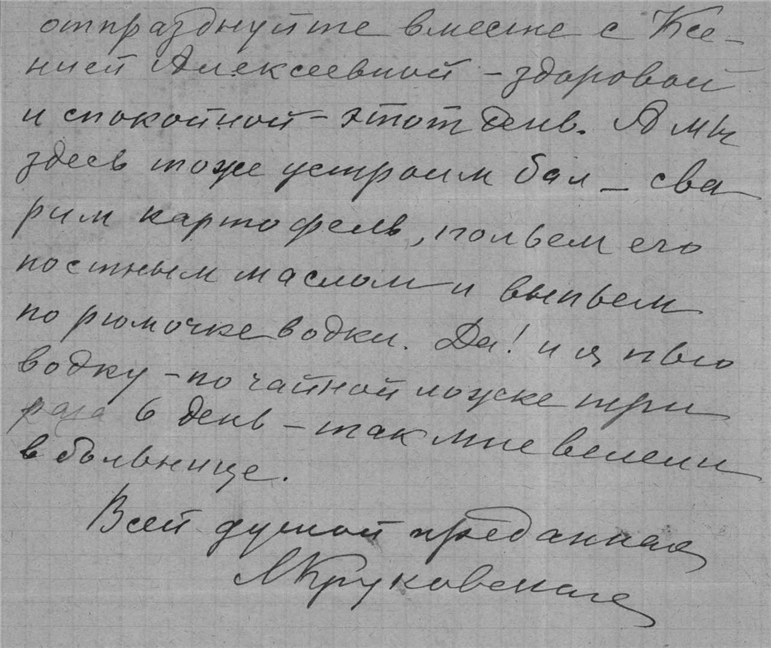 отпразднуйте вместе с Ксе-
нией Алексеевной - здоровой
и спокойной - этот день. А мы
здесь тоже устроим бал - сва
рим картофель, польем его
постным маслом и выпьем
по рюмочке водки. Да! и я пью
водку - по чайной ложке три
раза в день - так мне велели
в больнице.
Всей душой преданная
МКруковская